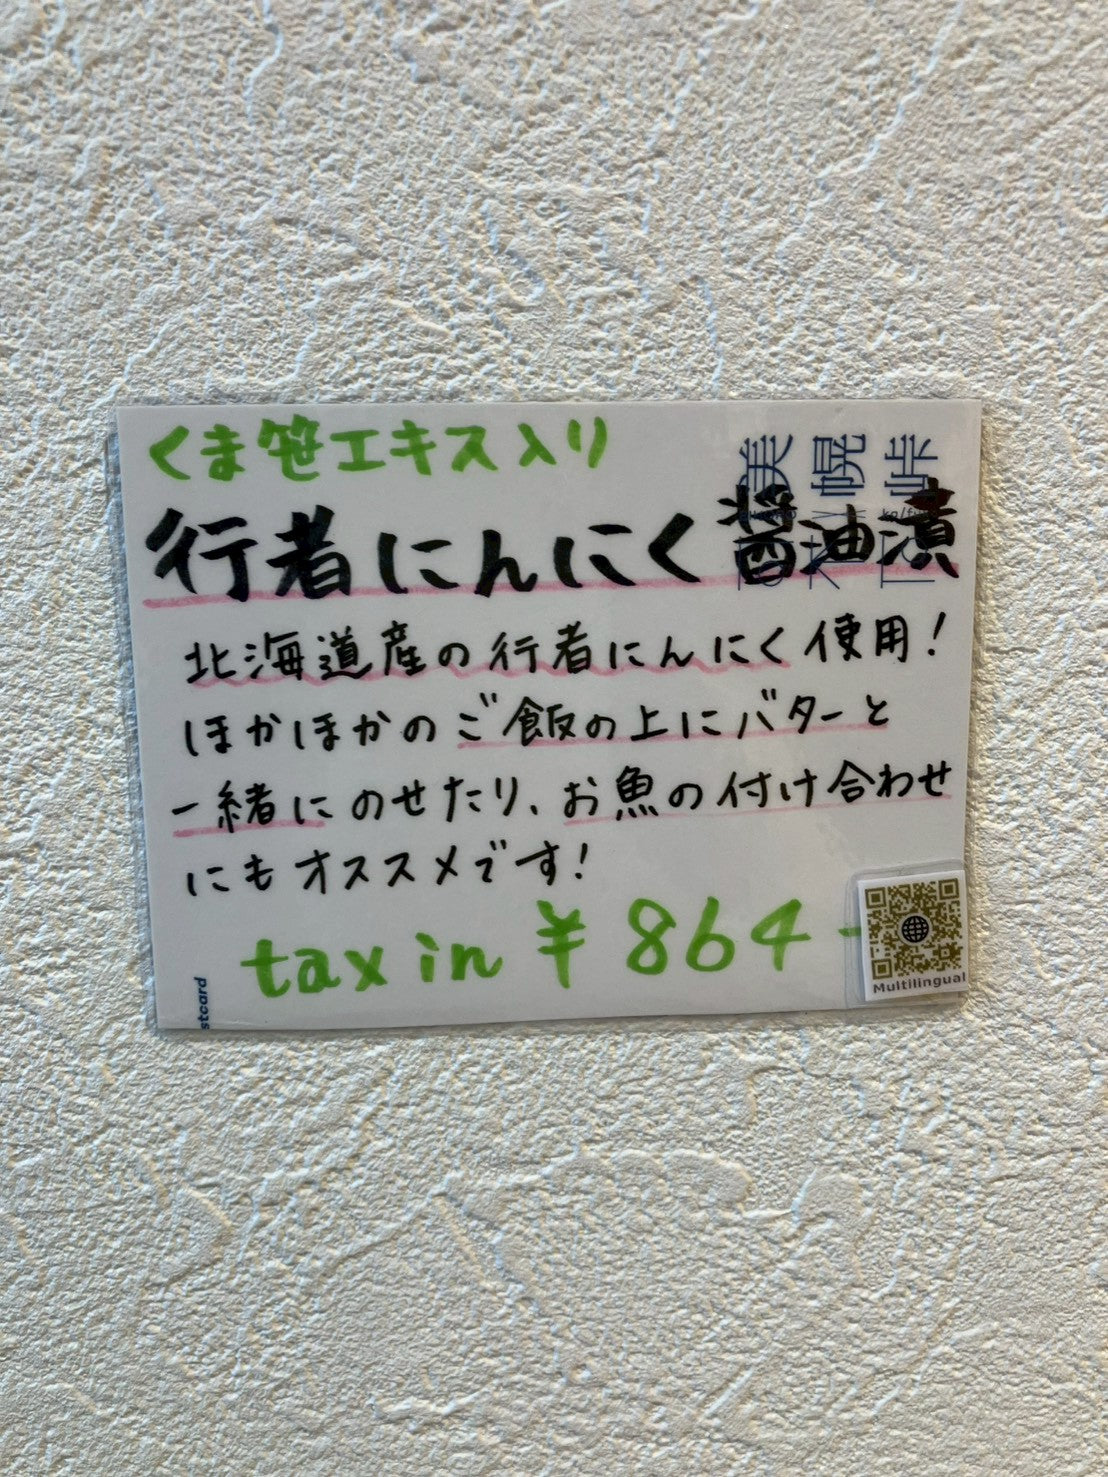 くま笹エキス入り
行者にんにく醤油漬
美幌峠
北海道産の行者にんにく使用!
ほかほかのご飯の上にバターと
一緒にのせたり、お魚の付け合わせ
にもオススメです!
tax in ¥864-
Multilingual
stcard